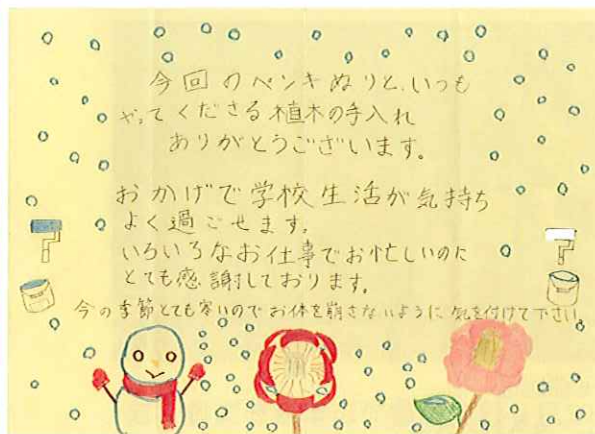 今回のペンキぬりと、いつも
やってくださる植木の手入れ
ありがとうございます。
おかげで学校生活が気持ち
よく過ごせます。
いろいろなお仕事でお忙しいのに
とても感謝しております。
今の季節とても寒いのでお体を崩さないように気を付けて下さい。